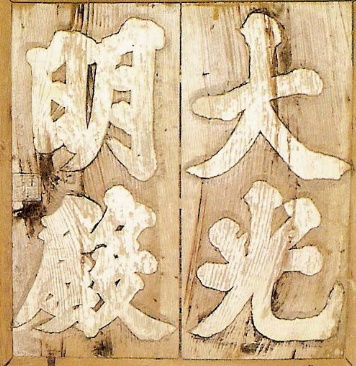 大光
明殿